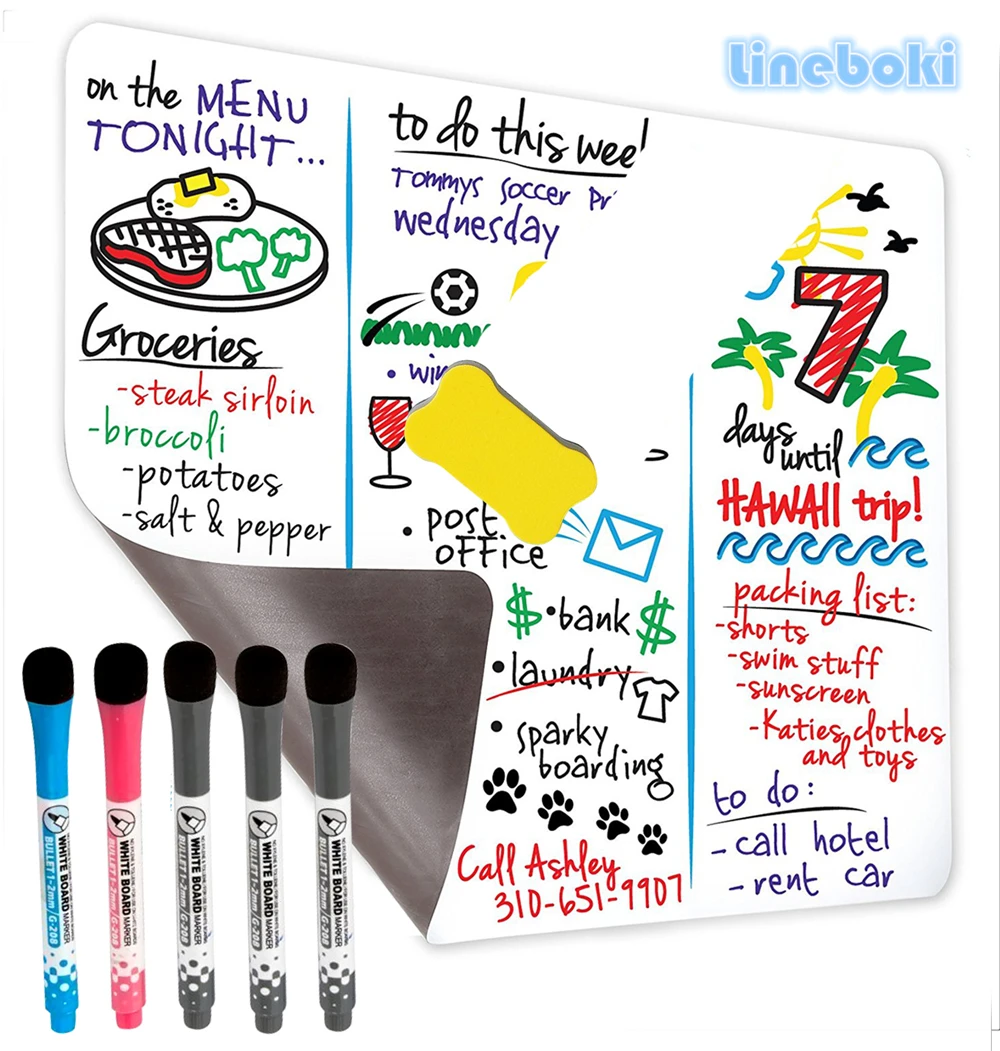 Lineboki
on the MENU
TONIGHT...
Groceries
-steak sirloin
-broccoli
-potatoes
-salt & pepper
to do this
Tommys soccer
wednesday
• post
office
$ • bank $
• laundry
• sparky
boarding
Call Ashley
310-651-9907
7
days
until
HAWAII trip!
packing list:
-shorts
-swim stuff
-sunscreen
-Katies clothes
and toys
to do:
- call hotel
- rent car
WHITE BOARD MARKER
BULLET 1-2mm/G-208
WHITE BOARD MARKER
BULLET 1-2mm/G-208
WHITE BOARD MARKER
BULLET 1-2mm/G-208
WHITE BOARD MARKER
BULLET 1-2mm/G-208
WHITE BOARD MARKER
BULLET 1-2mm/G-208